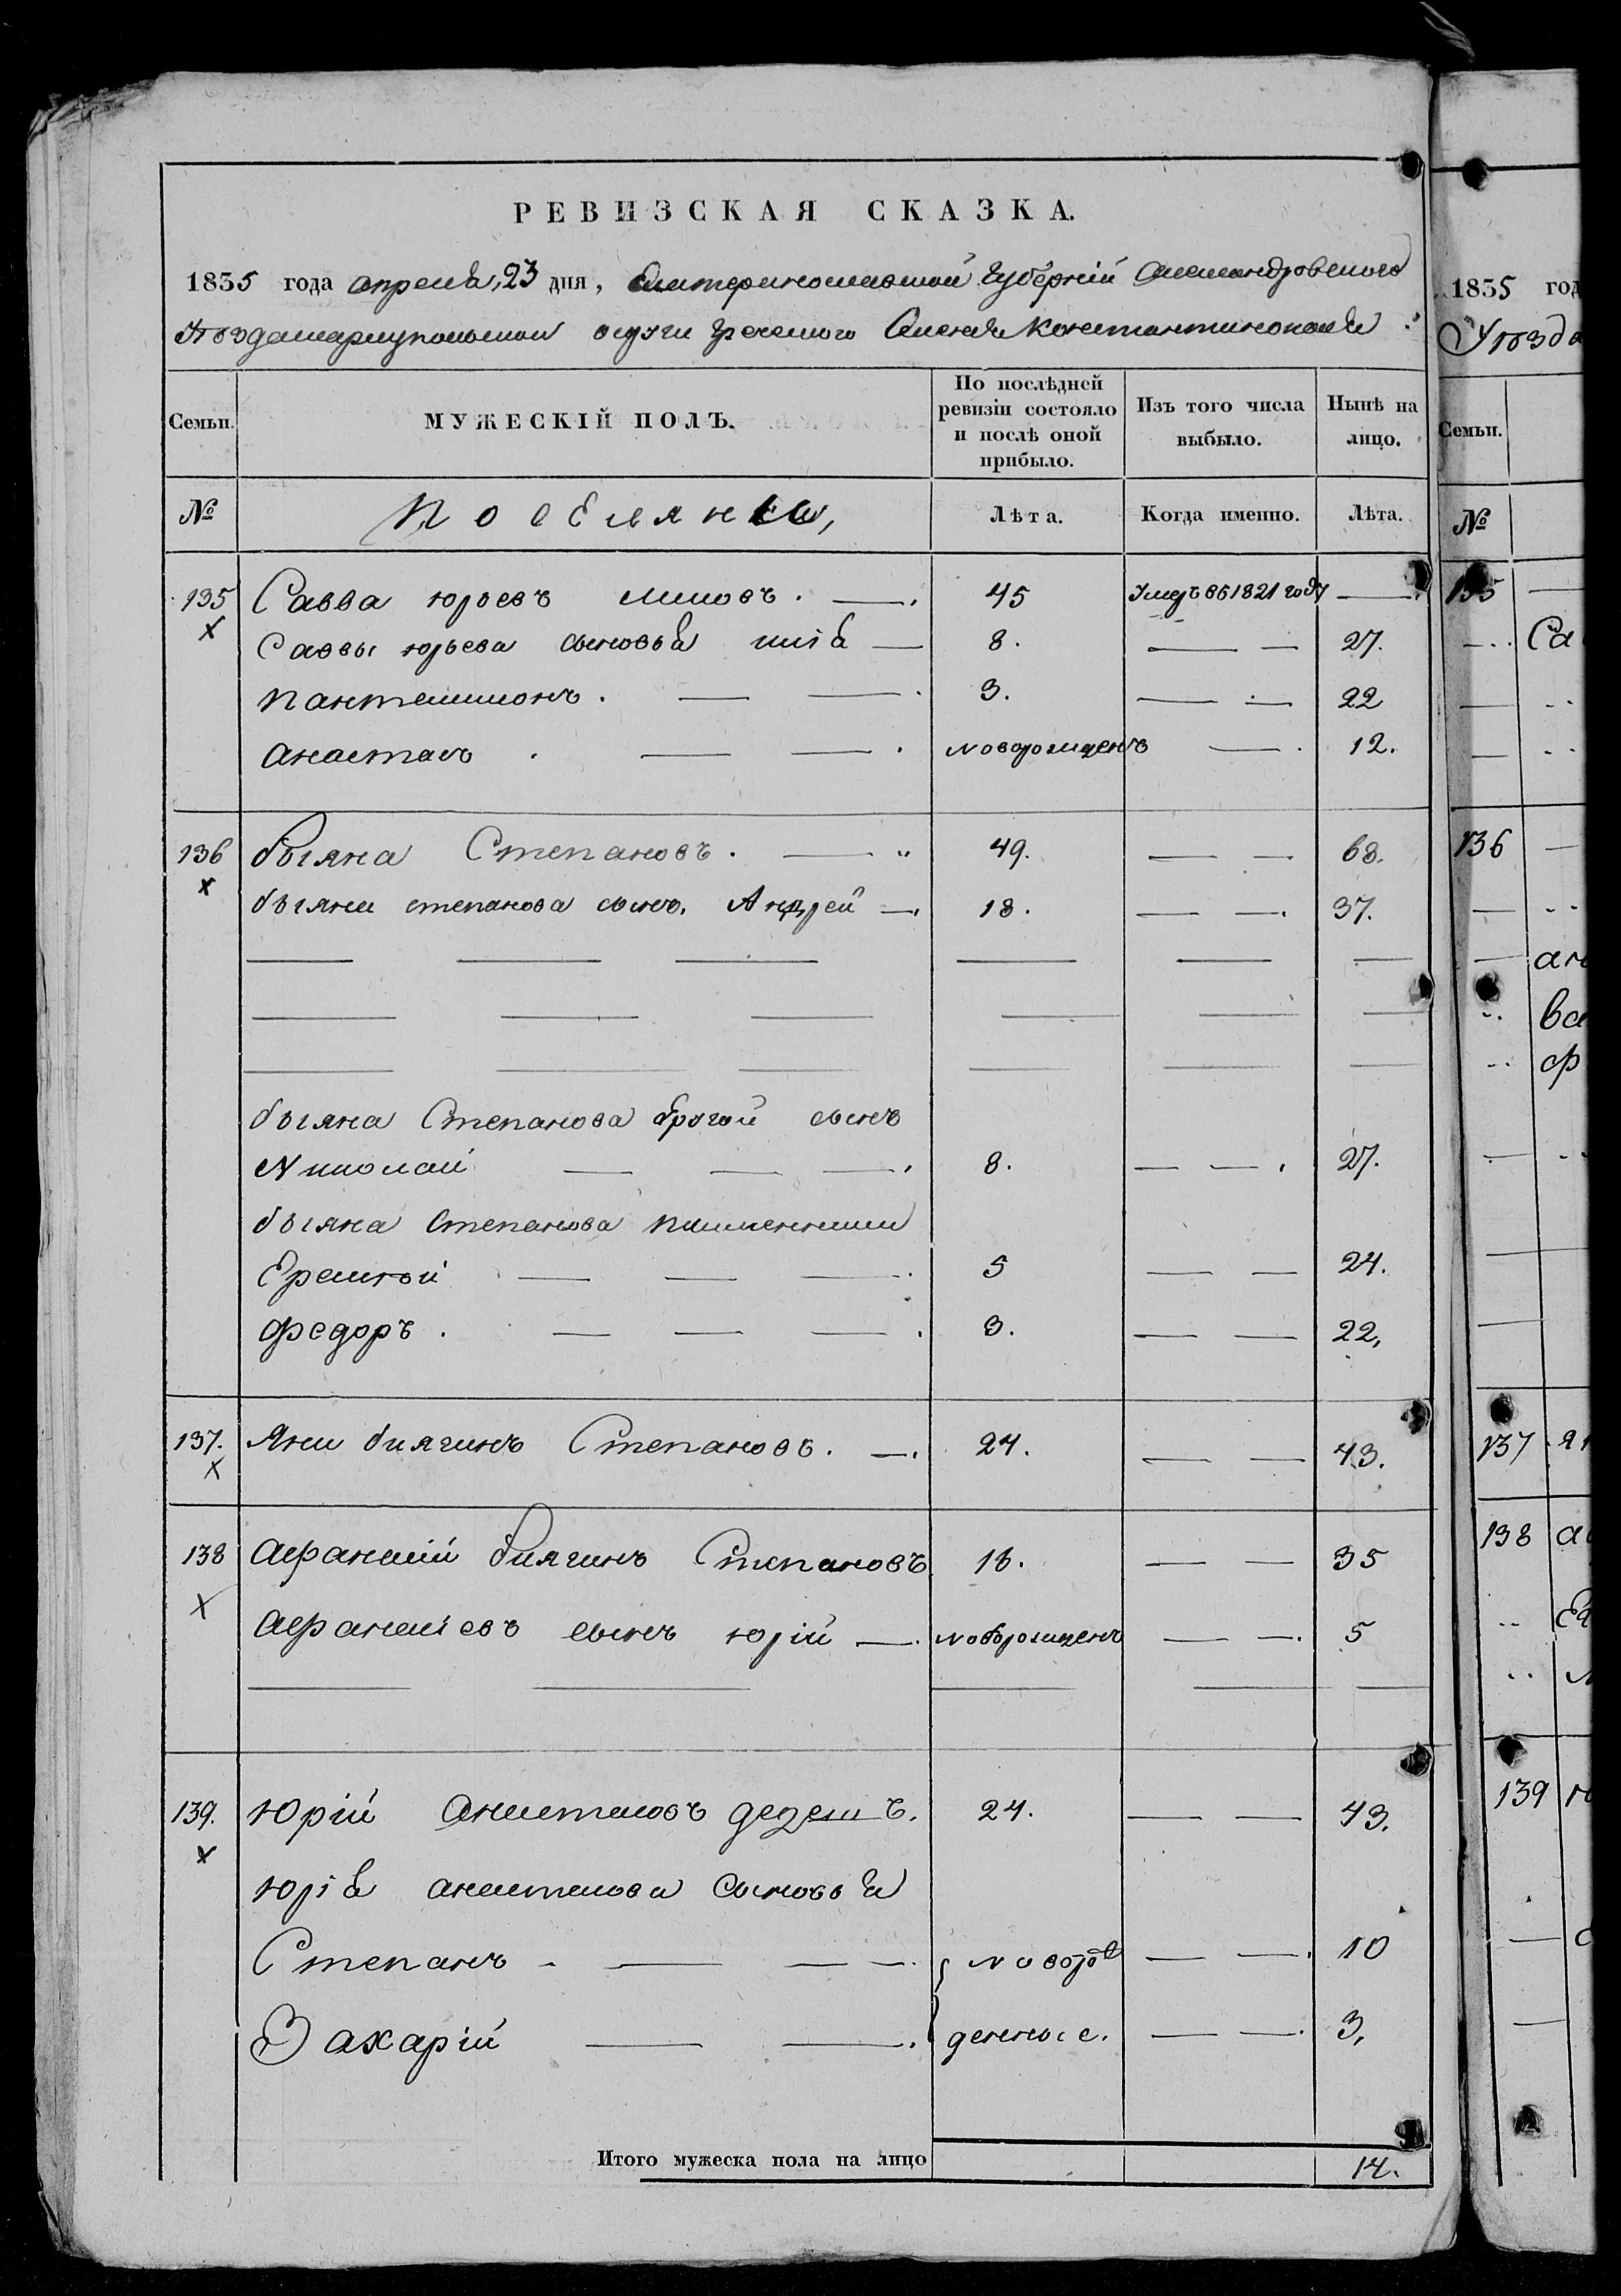 РЕВИЗСКАЯ СКАЗКА.
1835 года апреля, 23 дня, Екатеринославской Губерній Александровскаго
Уѣзда мариупольской округи греческого Селенія Константинополя
Семьи. МУЖЕСКІЙ ПОЛЪ. По послѣдней ревизіи состояло и послѣ оной прибыло. Изъ того числа выбыло. Нынѣ на лицо.
№ Поселяне, Лѣта. Когда именно. Лѣта.
135 Савва юрьевъ 45 Умеръ въ 1821 году
Саввы юрьева сыновья илія 8. 27.
пантелимонъ. 3. 22
анастасъ новорожденъ 12.
136 Степановъ. 49. 68.
степанова сынъ. Андрей 18. 37.
Степанова другой сынъ
Николай 8. 27.
Степанова племянники
Еремѣй 5 24.
федоръ. 3. 22,
137. Яни биягинъ Степановъ. 24. 43.
138 афанасий биягинъ Степановъ 16. 35
афанасіевъ сынъ юрій новорожденъ 5
139. юрій анастасовъ 24. 43.
юрія анастасова сыновья
Степанъ новорож 10
Захарій денные. 3,
Итого мужеска пола на лицо 14.
1835 год
Уѣзда
Семьи.
№
135
Са
136
ан
ва
ф
137 ян
138 а
139 ю